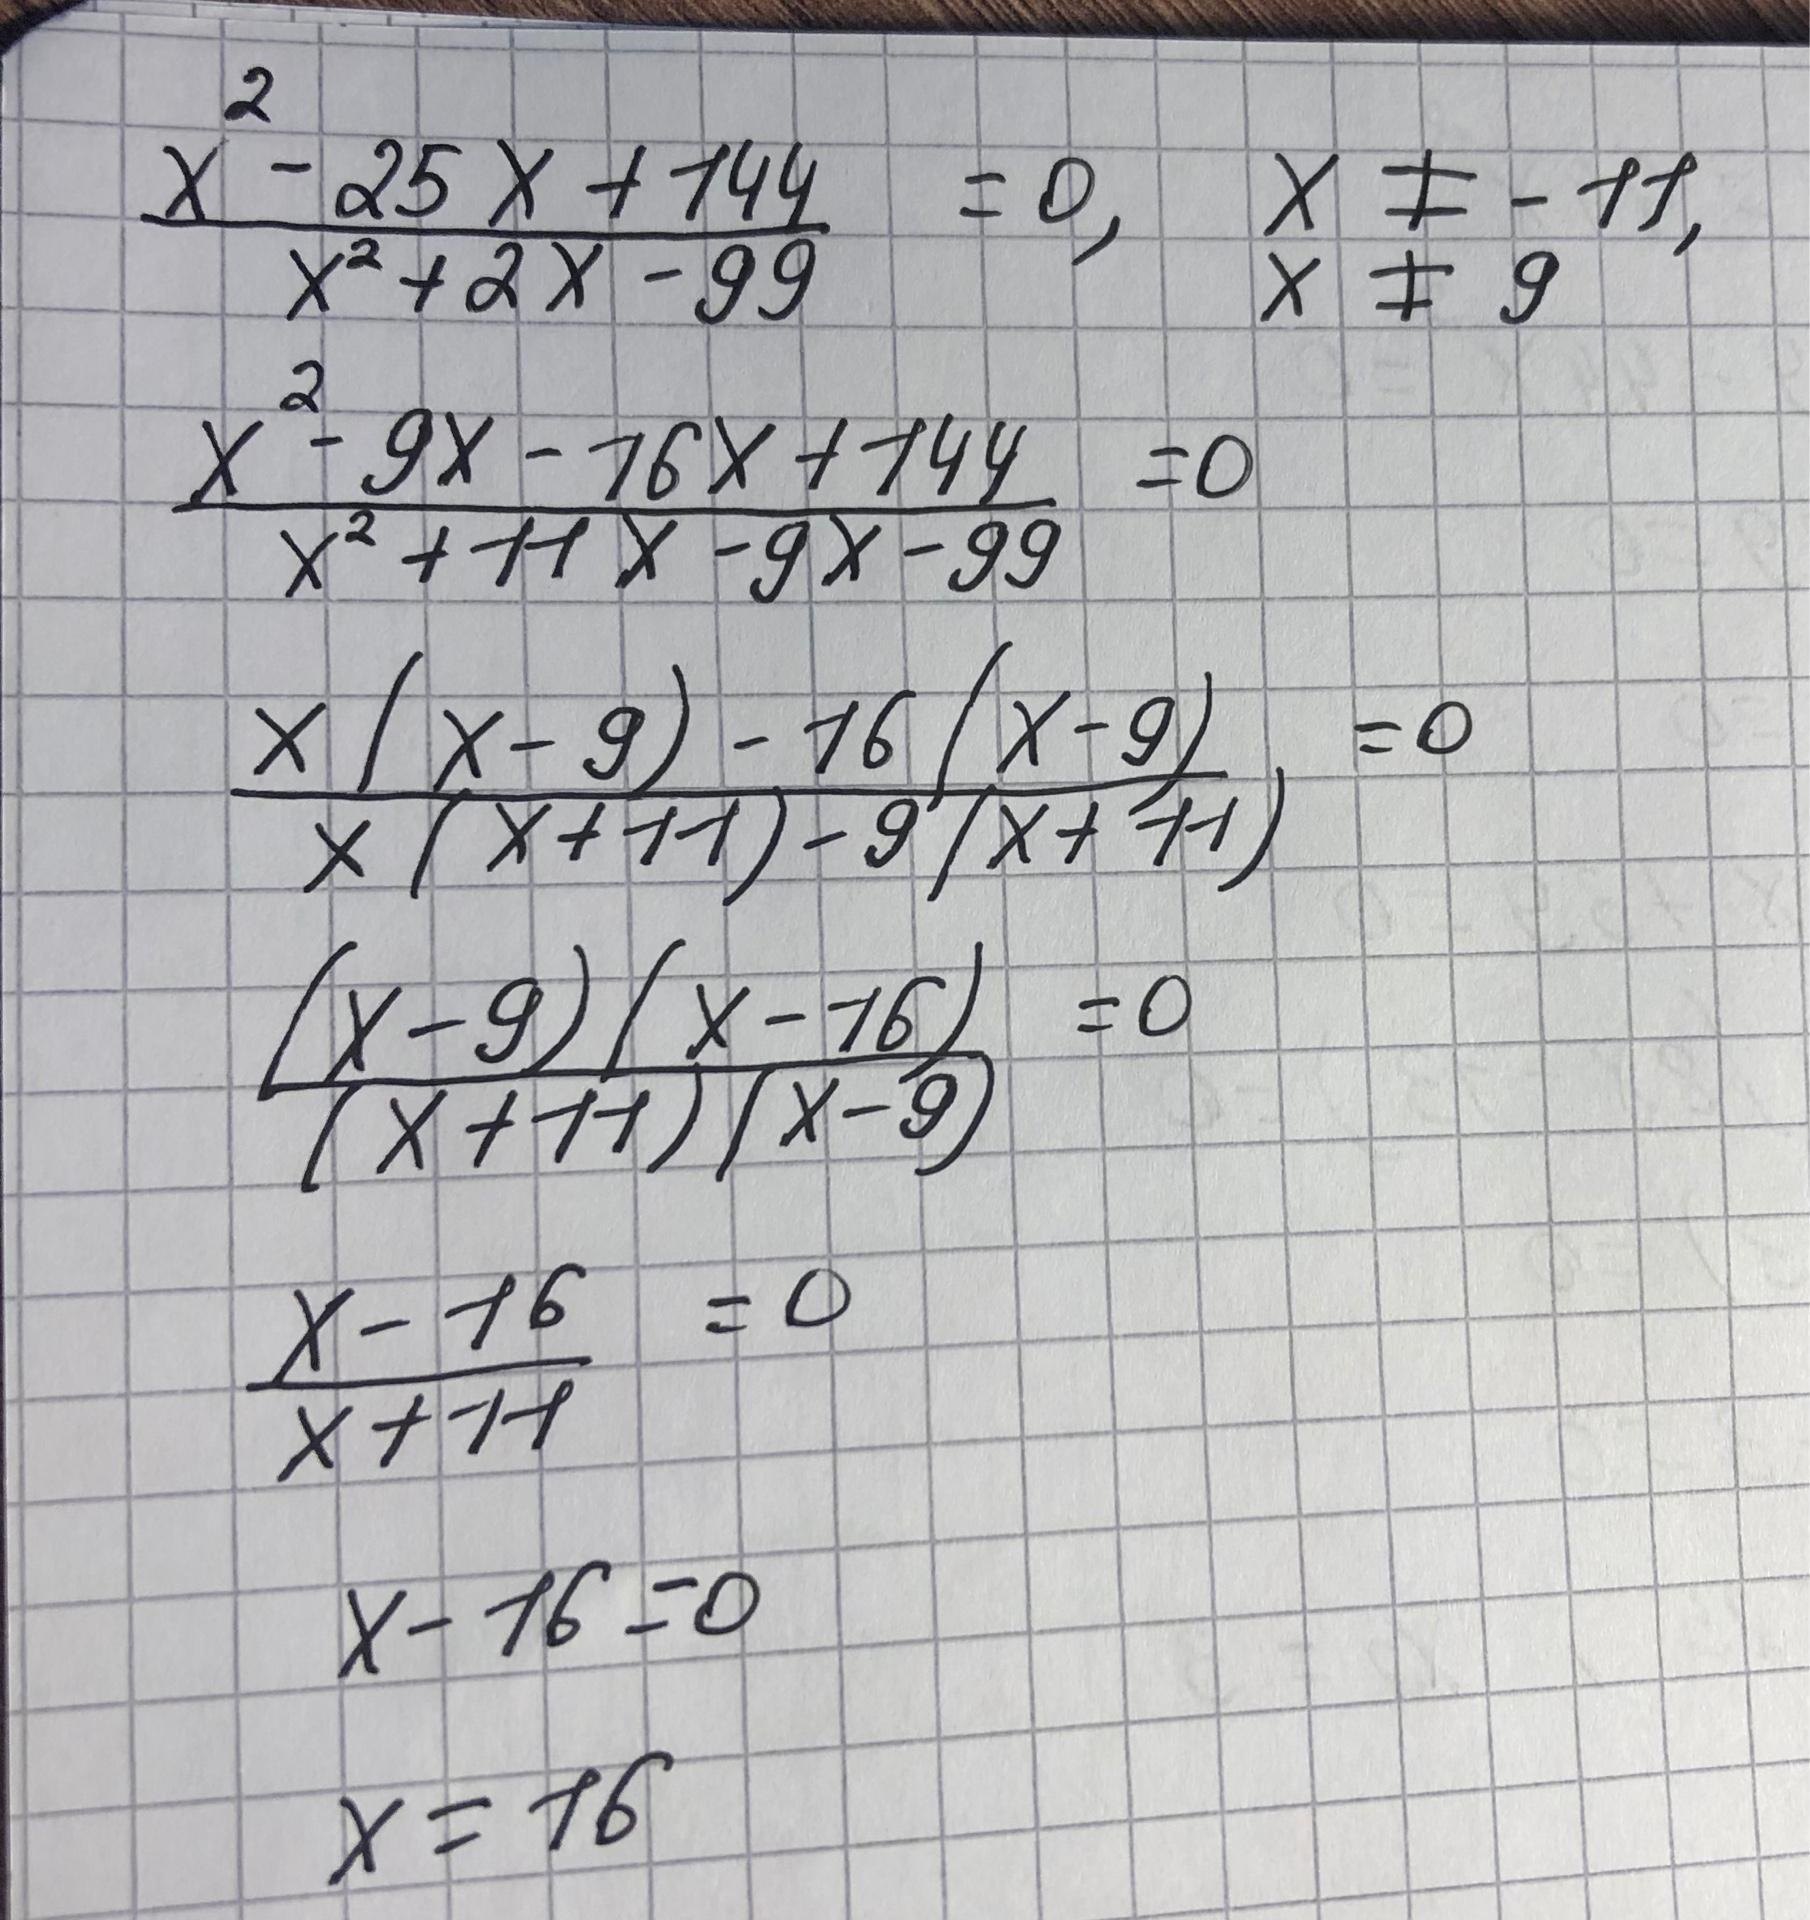 x² - 25x + 144 / x² + 2x - 99 = 0, x ≠ -11,
x ≠ 9
x² - 9x - 16x + 144 / x² + 11x - 9x - 99 = 0
x(x - 9) - 16(x - 9) / x(x + 11) - 9(x + 11) = 0
(x - 9)(x - 16) / (x + 11)(x - 9) = 0
x - 16 / x + 11 = 0
x - 16 = 0
x = 16